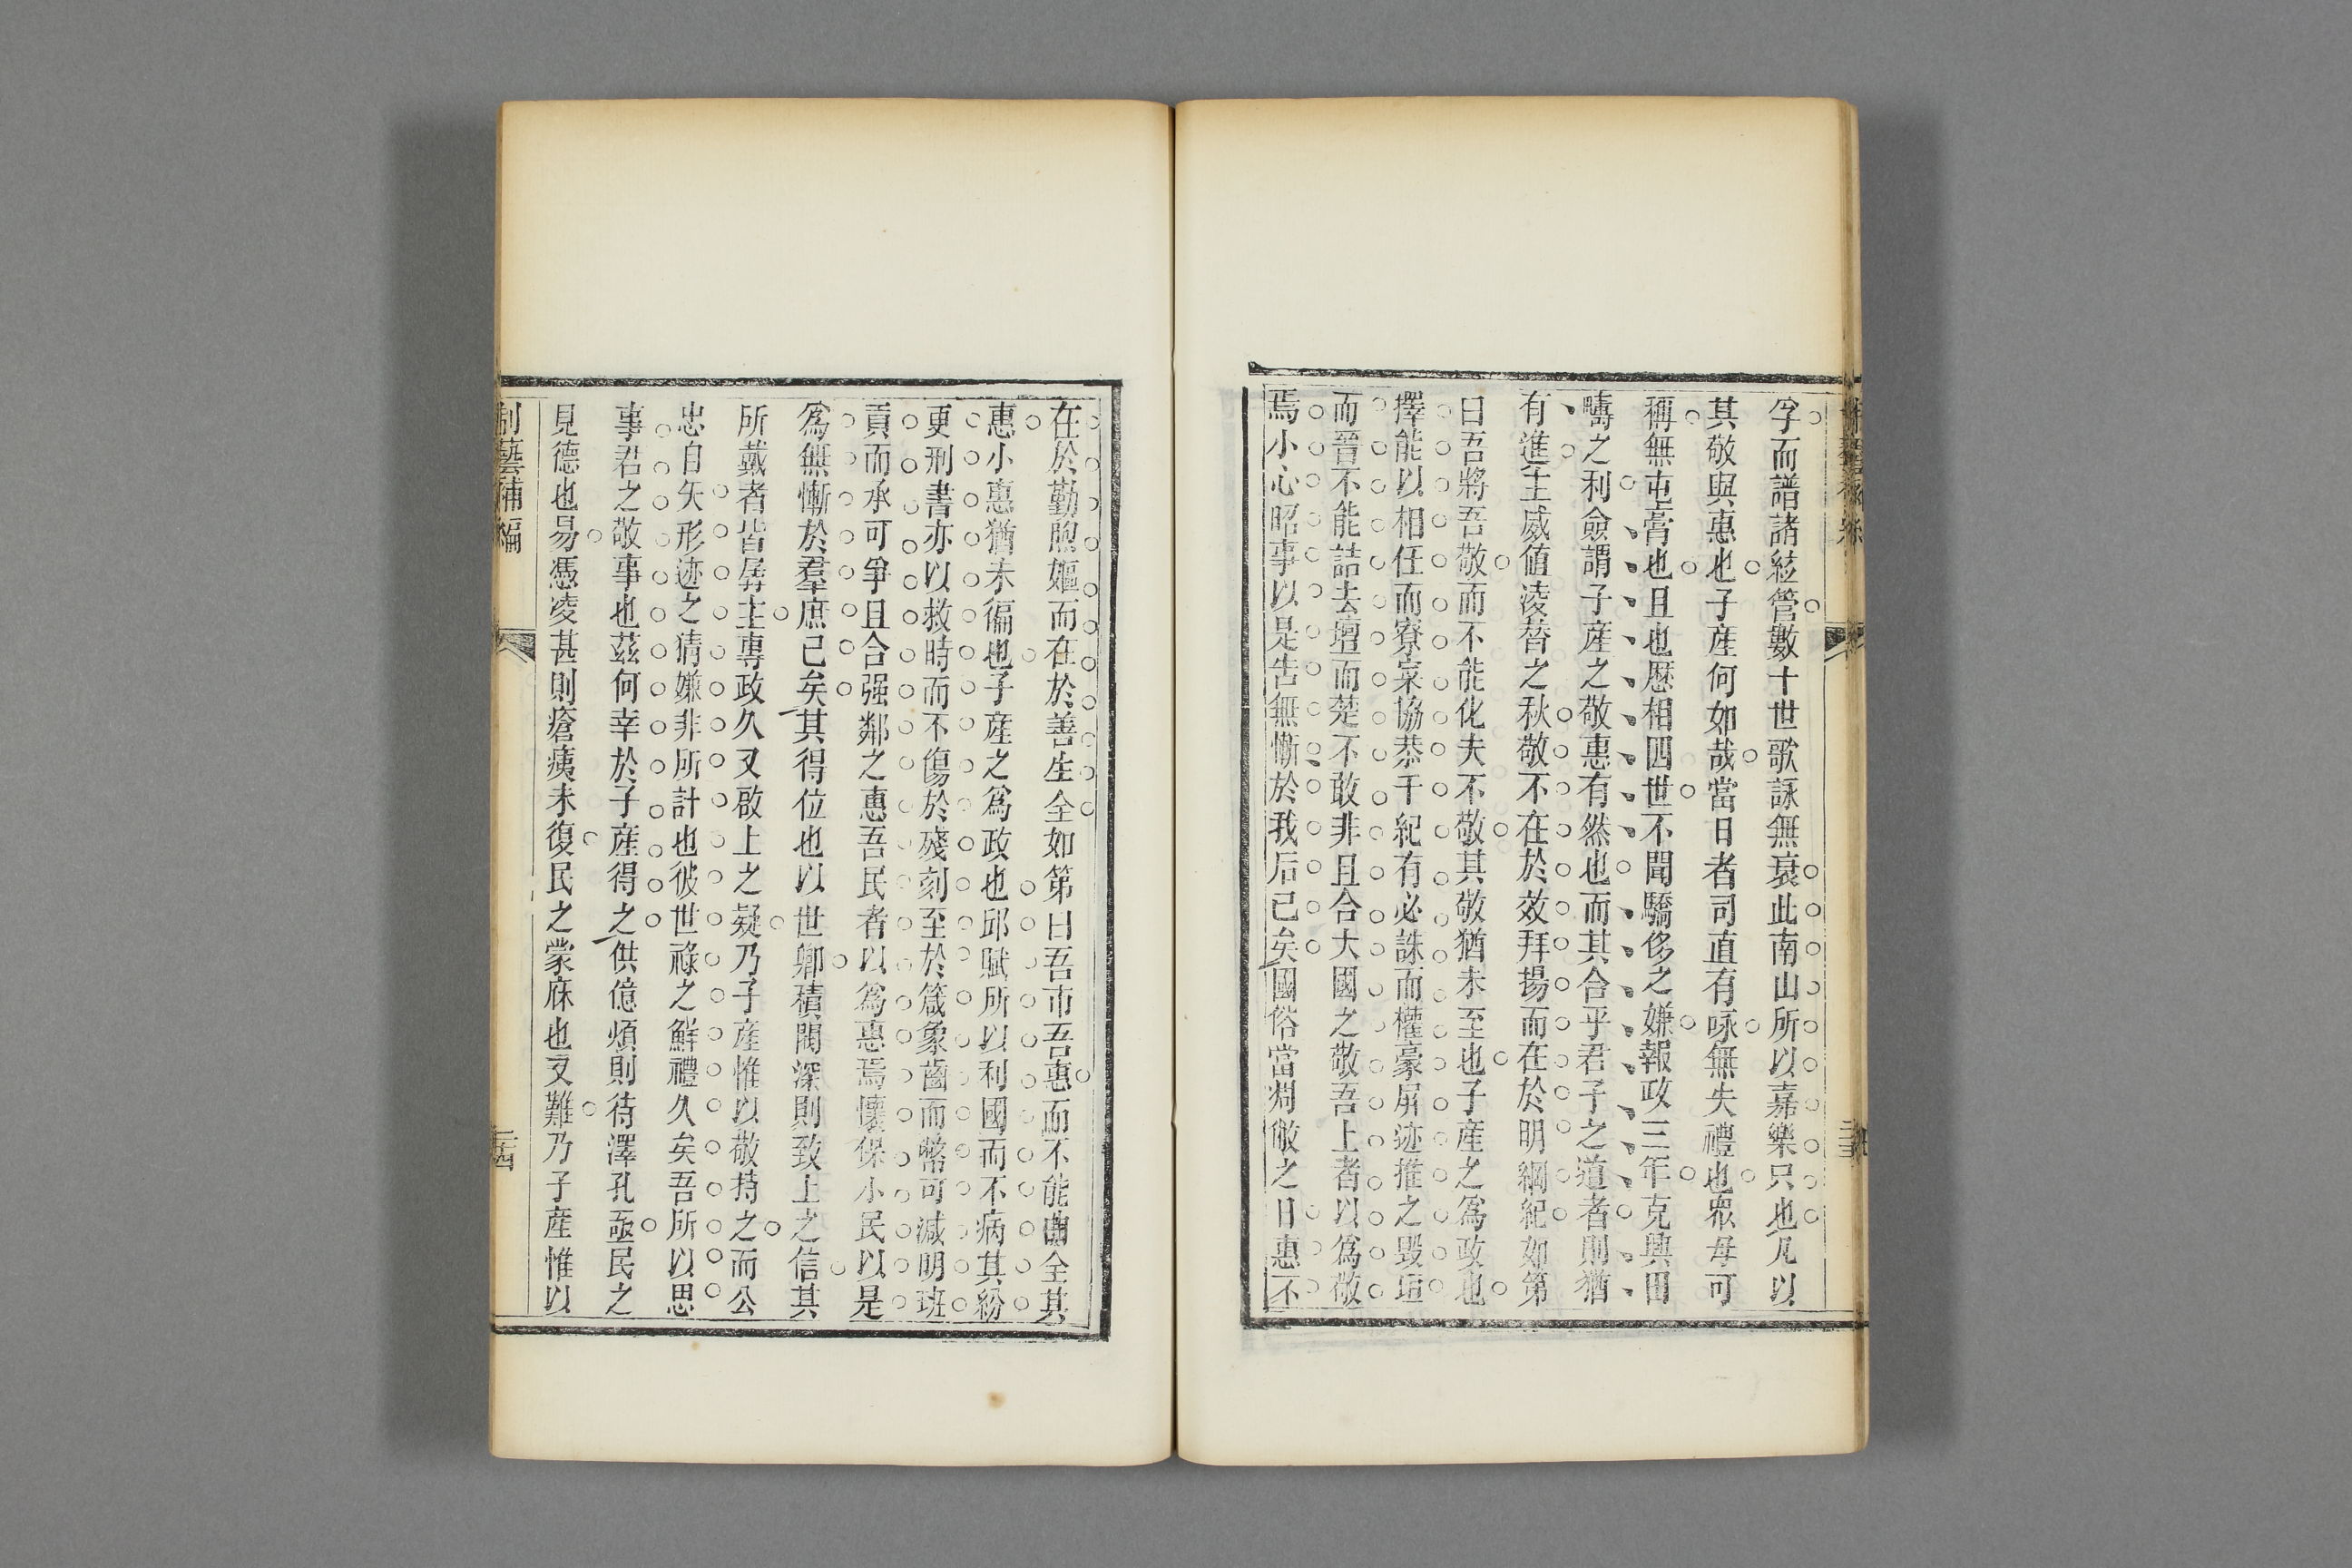 孚而譜諸絃管數十世歌詠無衰此南山所以嘉樂只也凡以
其敬與惠也子產何如哉當日者司直有咏無失禮也衆母可
稱無屯膏也且也歷相四世不聞驕侈之嫌報政三年克興田
疇之利僉謂子產之敬惠有然也而其合乎君子之道者則猶
有進主威値凌替之秋敬不在於效拜揚而在於明綱紀如第
曰吾將吾敬而不能化夫不敬其敬猶未至也子產之爲政也
擇能以相任而寮寀協恭干紀有必誅而權豪屛迹推之毀垣
而晉不能詰去壇而楚不敢非且合大國之敬吾上者以爲敬
焉小心昭事以是告無慚於我后已矣國俗當凋敝之日惠不
在於勤煦嫗而在於善生全如第曰吾市吾惠而不能曲全其
惠小惠猶未徧也子產之爲政也邱賦所以利國而不病其紛
更刑書亦以救時而不傷於殘刻至於箴象齒而幣可減明班
貢而承可爭且合强鄰之惠吾民者以爲惠焉懷保小民以是
爲無慚於羣庶已矣其得位也以世卿積閥深則致上之信其
所戴者皆孱主專政久又啟上之疑乃子產惟以敬持之而公
忠自矢形迹之猜嫌非所計也彼世祿之鮮禮久矣吾所以思
事君之敬事也茲何幸於子產得之供億煩則待澤孔亟民之
見德也易憑凌甚則瘡痍未復民之蒙庥也又難乃子產惟以
制藝補編
二十四